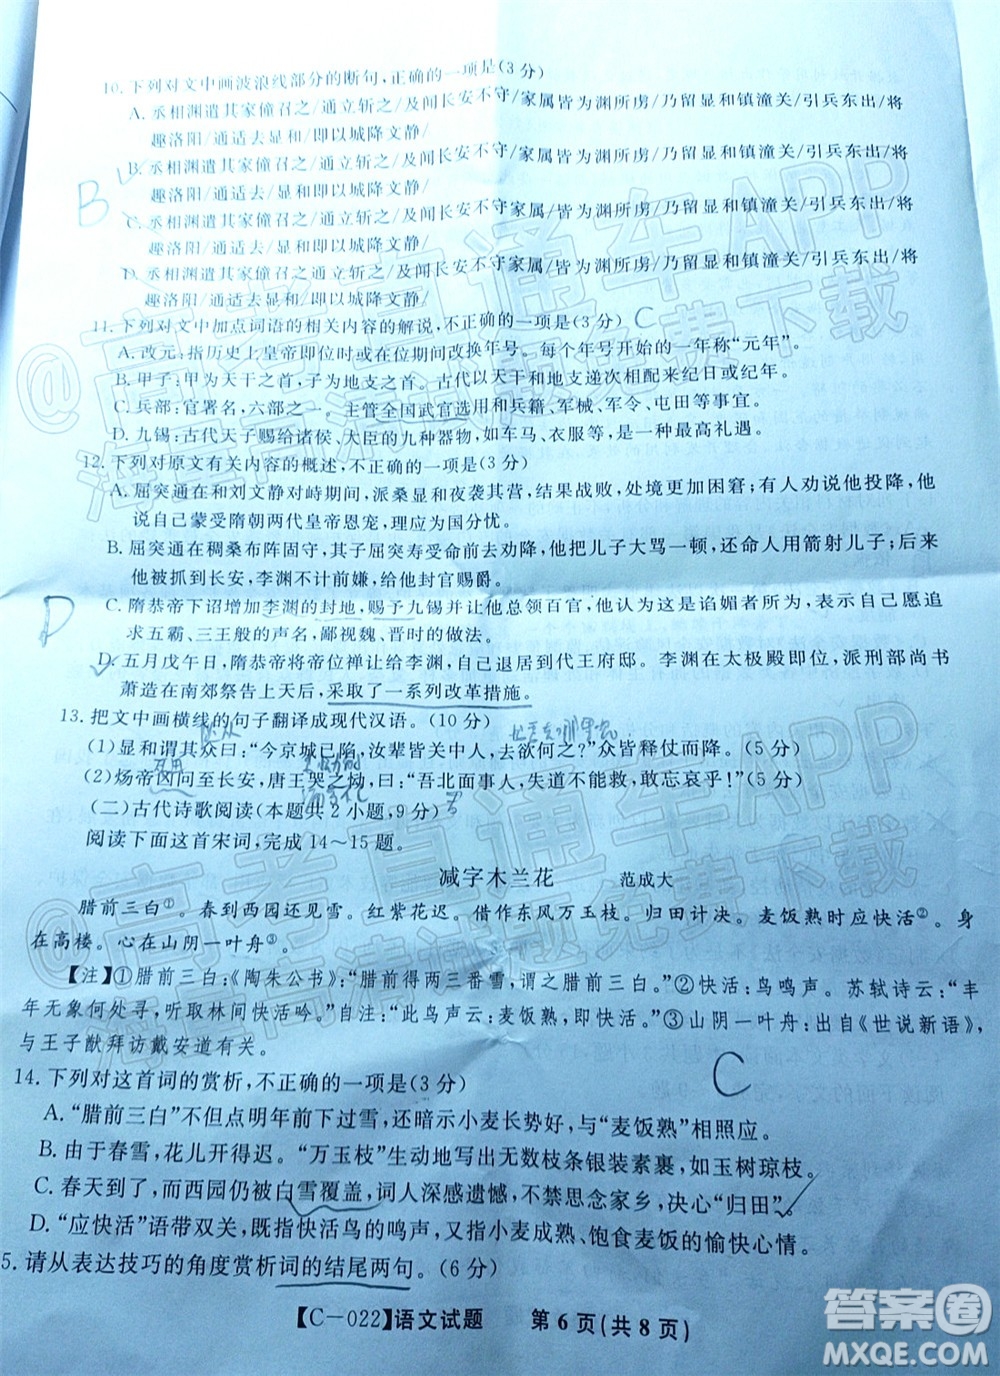 10. 下列对文中画波浪线部分的断句,正确的一项是(3 分)
A. 丞相渊遣其家僮召之/通立斩之/及闻长安不守/家属皆为渊所虏/乃留显和镇潼关/引兵东出/将
趣洛阳/通适去显和/即以城降文静/
B. 丞相渊遣其家僮召之/通立斩之/及闻长安不守/家属皆为渊所虏/乃留显和镇潼关/引兵东出/将
趣洛阳/通适去/显和即以城降文静/
C. 丞相渊遣其家僮召之/通立斩之/及闻长安不守家属/皆为渊所虏/乃留显和镇潼关/引兵东出/将
趣洛阳/通适去显和/即以城降文静/
D. 丞相渊遣其家僮召之/通立斩之/及闻长安不守家属/皆为渊所虏/乃留显和镇潼关/引兵东出/将
趣洛阳/通适去/显和即以城降文静/
B
11. 下列对文中加点词语的相关内容的解说,不正确的一项是(3 分) C
A. 改元:指历史上皇帝即位时或在位期间改换年号。每个年号开始的一年称“元年”。
B. 甲子:甲为天干之首,子为地支之首。古代以天干和地支递次相配来纪日或纪年。
C. 兵部:官署名,六部之一。主管全国武官选用和兵籍、军械、军令、屯田等事宜。
D. 九锡:古代天子赐给诸侯、大臣的九种器物,如车马、衣服等,是一种最高礼遇。
12. 下列对原文有关内容的概述,不正确的一项是(3 分)
A. 屈突通在和刘文静对峙期间,派桑显和夜袭其营,结果战败,处境更加困窘;有人劝说他投降,他
说自己蒙受隋朝两代皇帝恩宠,理应为国分忧。
B. 屈突通在稠桑布阵固守,其子屈突寿前去劝降,他把儿子大骂一顿,还命人用箭射儿子;后来
他被抓到长安,李渊不计前嫌,给他封官赐爵。
C. 隋恭帝下诏增加李渊的封地,赐予九锡并让他总领百官,他认为这是谄媚者所为,表示自己愿追
求五霸、三王般的声名,鄙视魏、晋时的做法。
D. 五月戊午日,隋恭帝将帝位禅让给李渊,自己退居到代王府邸。李渊在太极殿即位,派刑部尚书
萧造在南郊祭告上天后,采取了一系列改革措施。
D
13. 把文中画横线的句子翻译成现代汉语。(10 分)
(1)显和谓其众曰:“今京城已陷,汝辈皆关中人,去欲何之?”众皆释仗而降。(5 分)
(2)炀帝凶问至长安,唐王哭之恸,曰:“吾北面事人,失道不能救,敢忘哀乎!”(5 分)
(二)古代诗歌阅读(本题共 2 小题,9 分)
阅读下面这首宋词,完成 14～15 题。
减字木兰花 范成大
腊前三白①。春到西园还见雪。红紫花迟。借作东风万玉枝。归田计决。麦饭熟时应快活②。身
在高楼。心在山阴一叶舟③。
【注】①腊前三白:《陶朱公书》:“腊前得两三番雪,谓之腊前三白。”②快活:鸟鸣声。苏轼诗云:“丰
年无象何处寻,听取林间快活吟。”自注:“此鸟声云:麦饭熟,即快活。”③山阴一叶舟:出自《世说新语》,
与王子猷拜访戴安道有关。
14. 下列对这首词的赏析,不正确的一项是(3 分) C
A. “腊前三白”不但点明年前下过雪,还暗示小麦长势好,与“麦饭熟”相照应。
B. 由于春雪,花儿开得迟。“万玉枝”生动地写出无数枝条银装素裹,如玉树琼枝。
C. 春天到了,而西园仍被白雪覆盖,词人深感遗憾,不禁思念家乡,决心“归田”。
D. “应快活”语带双关,既指快活鸟的鸣声,又指小麦成熟、饱食麦饭的愉快心情。
5. 请从表达技巧的角度赏析词的结尾两句。(6 分)
【C—022】语文试题 第 6 页(共 8 页)
@高考直通车APP
海量高清试题免费下载
@高考直通车APP
海量高清试题免费下载
答案圈
MXQE.COM